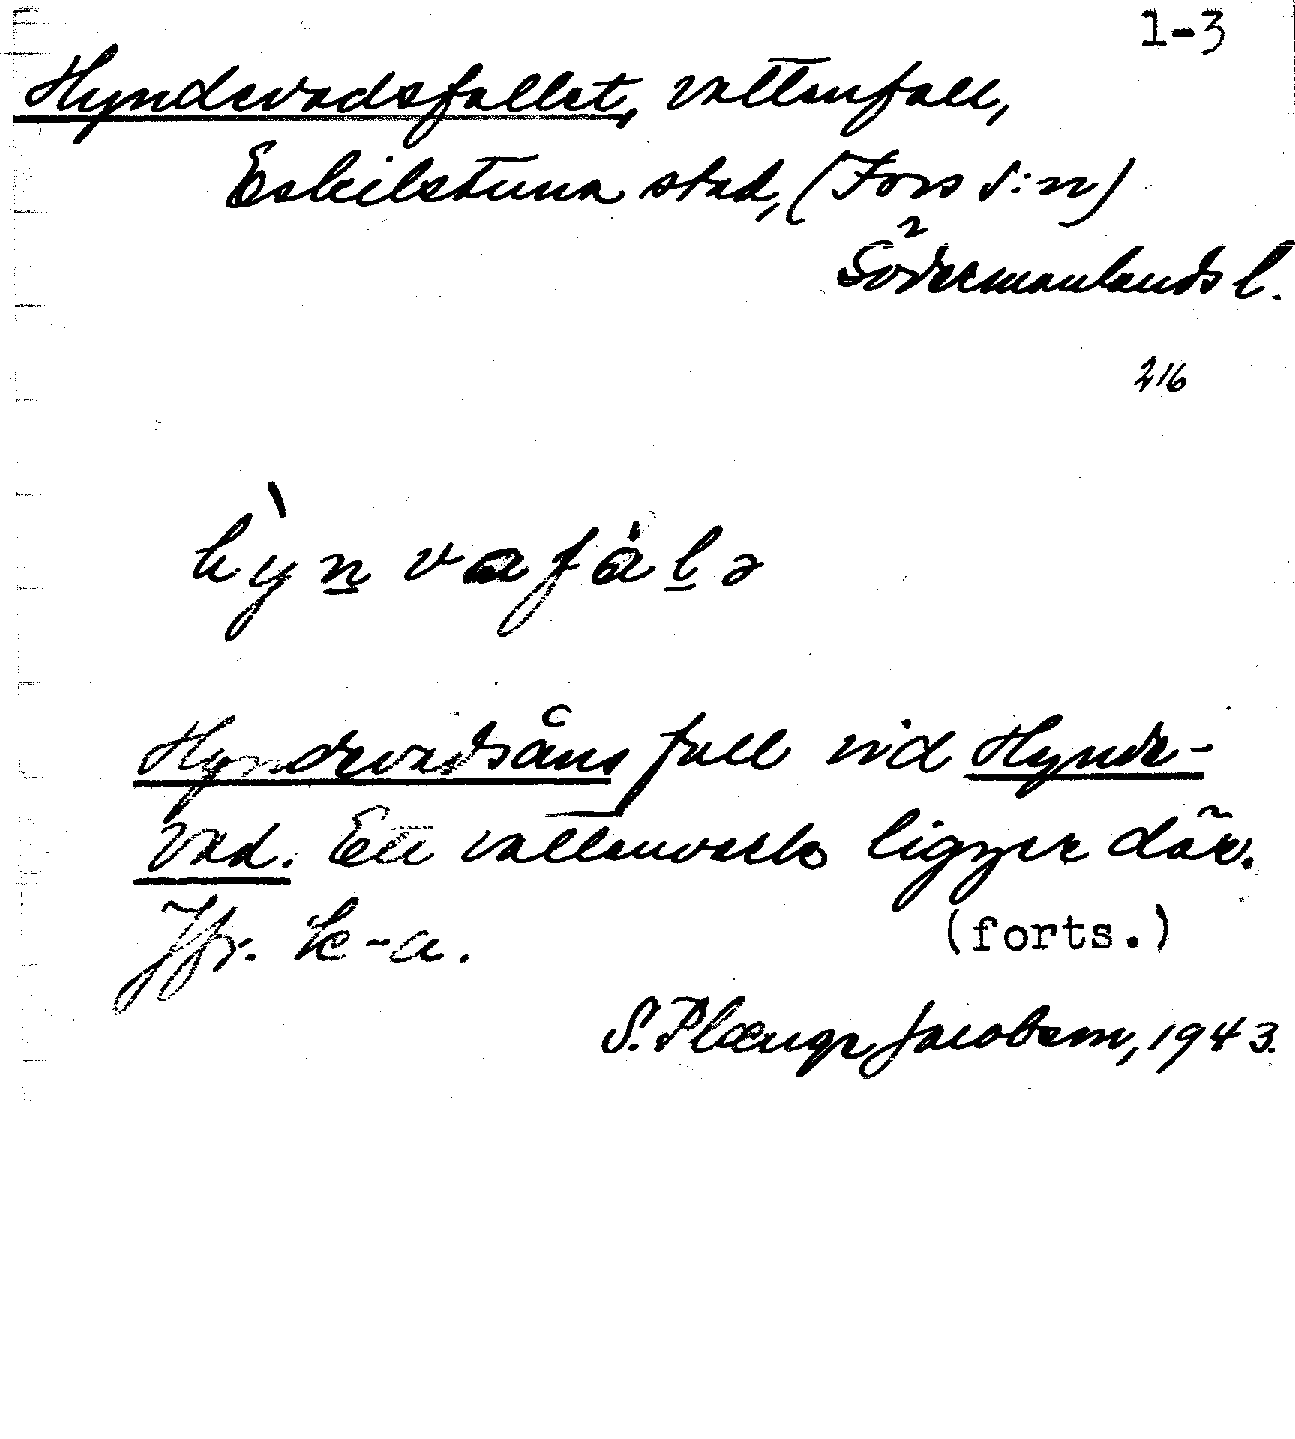 1-3
Hyndevadsfallet, vattenfall,
Eskilstuna stad, (Fors s:n)
Södermanlands l.
216
hỳn̲vafàl̲ə
Hyndevadsåns fall vid Hynde-
vad. Ett vattenverk ligger där.
Jfr. k-a.
(forts.)
S. Plænge Jacobson, 1943.